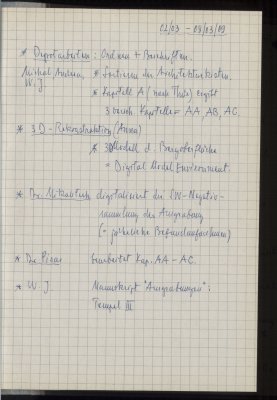 02/03 - 08/03/19
* Depotarbeiten: Ordnen + Beschriften.
Michal, Andrea, * Sortieren der Architekturkisten.
W. J. * Kapitell A (nach Thule) ergibt
3 versch. Kapitelle = AA, AB, AC.
* 3D-Rekonstruktion (Anna)
* 3D Modell d. Bergoberfläche
= Digital Model Environment.
* Dr. digitalisiert die SW-Negativ-
sammlung der Ausgrabung
(= Befundaufnahmen)
* Dr. Piras bearbeitet Kap. AA - AC.
* W. J. Manuskript "Ausgrabungen":
Tempel III